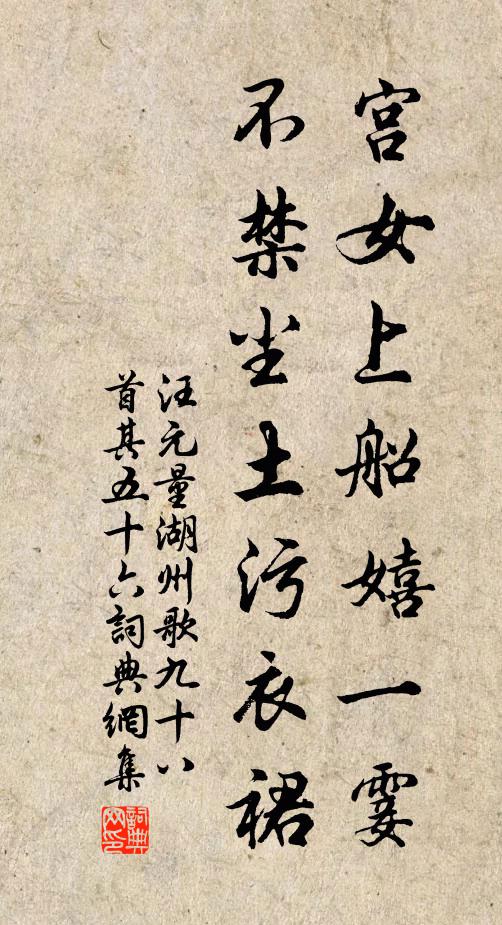 宫女上船嬉一霎
不禁尘土污衣裙
汪元量湖州歌九十八
首其五十六詞典網集
詞典
网印